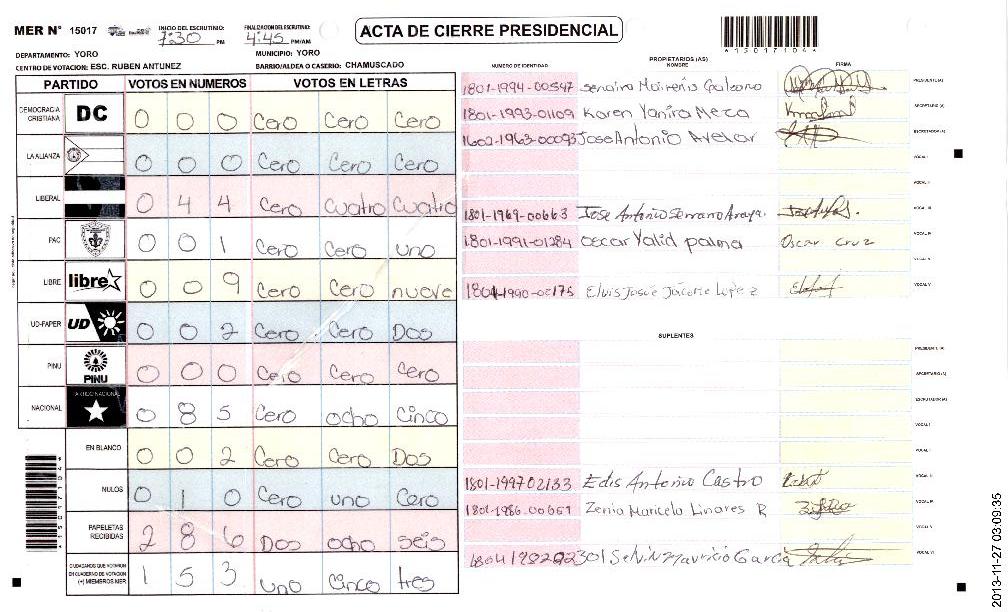 MER Nº 15017 INICIO DEL ESCRUTINIO: 7:30 PM FINALIZACION DEL ESCRUTINIO: 4:45 PM/AM
ACTA DE CIERRE PRESIDENCIAL
*15017104*
DEPARTAMENTO: YORO MUNICIPIO: YORO
CENTRO DE VOTACION: ESC. RUBEN ANTUNEZ BARRIO/ALDEA O CASERIO: CHAMUSCADO
PARTIDO VOTOS EN NUMEROS VOTOS EN LETRAS
DEMOCRACIA CRISTIANA DC 0 0 0 Cero Cero Cero
LA ALIANZA 0 0 0 Cero Cero Cero
LIBERAL 0 4 4 Cero Cuatro Cuatro
PAC 0 0 1 Cero Cero uno
LIBRE libre 0 0 9 Cero Cero nueve
UD-FAPER UD 0 0 2 Cero Cero Dos
PINU PINU 0 0 0 Cero Cero Cero
NACIONAL PARTIDO NACIONAL 0 8 5 Cero ocho Cinco
EN BLANCO 0 0 2 Cero Cero Dos
NULOS 0 1 0 Cero uno Cero
PAPELETAS RECIBIDAS 2 8 6 Dos ocho seis
CIUDADANOS QUE VOTARON EN CUADERNO DE VOTACION (+) MIEMBROS MER 1 5 3 uno Cinco tres
*15017104*
PROPIETARIOS (AS)
NUMERO DE IDENTIDAD NOMBRE FIRMA
1801-1994-00547 PRESIDENTE(A)
1801-1993-01109 Karen Yanira Meza SECRETARIO (A)
1602-1963-00093 Jose Antonio Avelar ESCRUTADOR (A)
VOCAL I
VOCAL II
1801-1969-00663 Jose Antonio Serrano VOCAL III
1801-1991-01284 oscar Yalid palma Oscar Cruz VOCAL IV
VOCAL V
1804-1990-02175 Elvis Josue Lopez VOCAL V
SUPLENTES
PRESIDENTE (A)
SECRETARIO (A)
ESCRUTADOR (A)
VOCAL I
VOCAL II
1801-199702133 Edis Antonio Castro VOCAL III
1801-1986-00651 Zenia Maricela Linares R VOCAL IV
VOCAL V
Mauricio Garcia VOCAL VI
2013-11-27 03:09:35